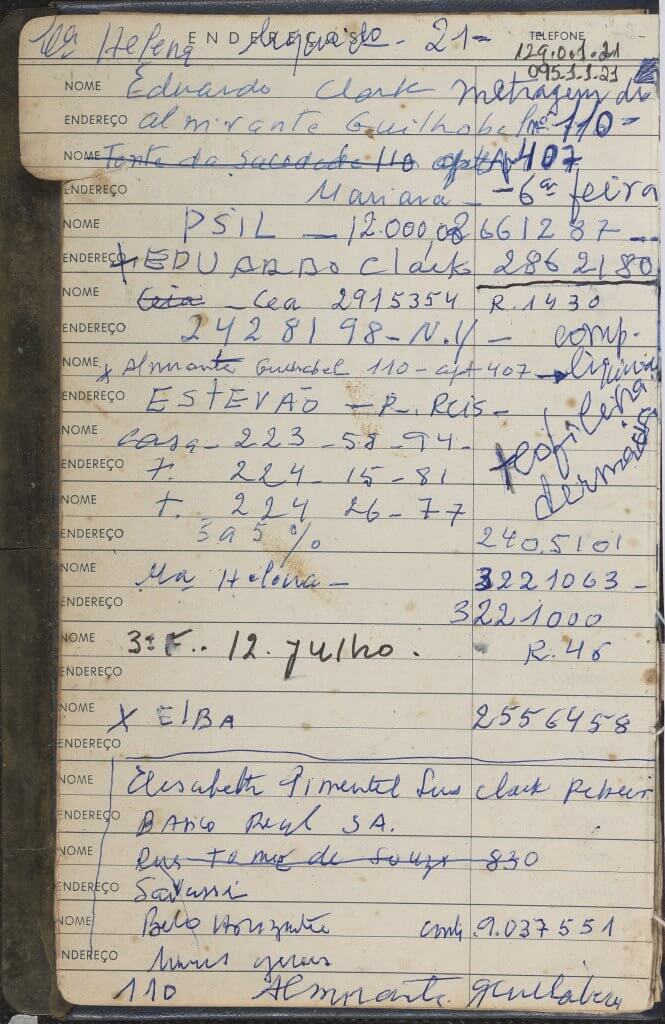 Mª Helena ENDEREÇOS - 21 - TELEFONE
129.0.1.21
095.1.1.21
NOME Eduardo Clark metragem de
ENDEREÇO almirante Guilhobel nº 110 -
NOME Fonte da Saudade 110 aptº 407
ENDEREÇO Mariana - - 6ª feira
NOME PSIL - 12.000,00 2661287 -
ENDEREÇO + EDUARDO Clark 2862180
NOME Cea 2915354 R. 1430
ENDEREÇO 24281 98 - N.Y - comp.
NOME x Almirante Guilhobel 110 - apt 407 →
ENDEREÇO ESTEVÃO - R. Reis -
teofileina
dermais
NOME casa - 223 - 58 - 94 -
ENDEREÇO t. 224 - 15 - 81
NOME t. 224 26 - 77
ENDEREÇO 3 a 5 % 240.5101
NOME Mª Helena - 3221063 -
ENDEREÇO 3221000
NOME 3ª F.. 12. Julho. R. 46
ENDEREÇO
NOME X ElBA 2556458
ENDEREÇO
NOME Elisabeth Pimentel Lins Clark Ribeiro
ENDEREÇO Banco Real SA.
NOME Rua Tomé de Souza 830
ENDEREÇO Savassi
NOME Belo Horizonte conta 9.037551
ENDEREÇO Minas gerais
110 Almirante Guilhobel